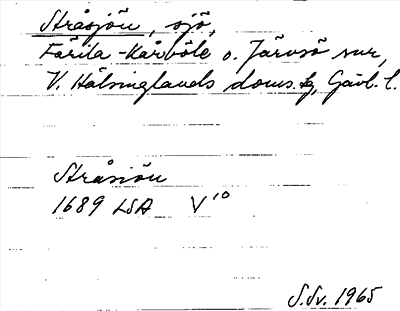 Stråsjön, sjö,
Färila-Kårböle o. Järvsö snr,
V. Hälsinglands doms. tg, Gävl. l.
Stråsiön
1689 LSA V¹⁰
S.Sv. 1965